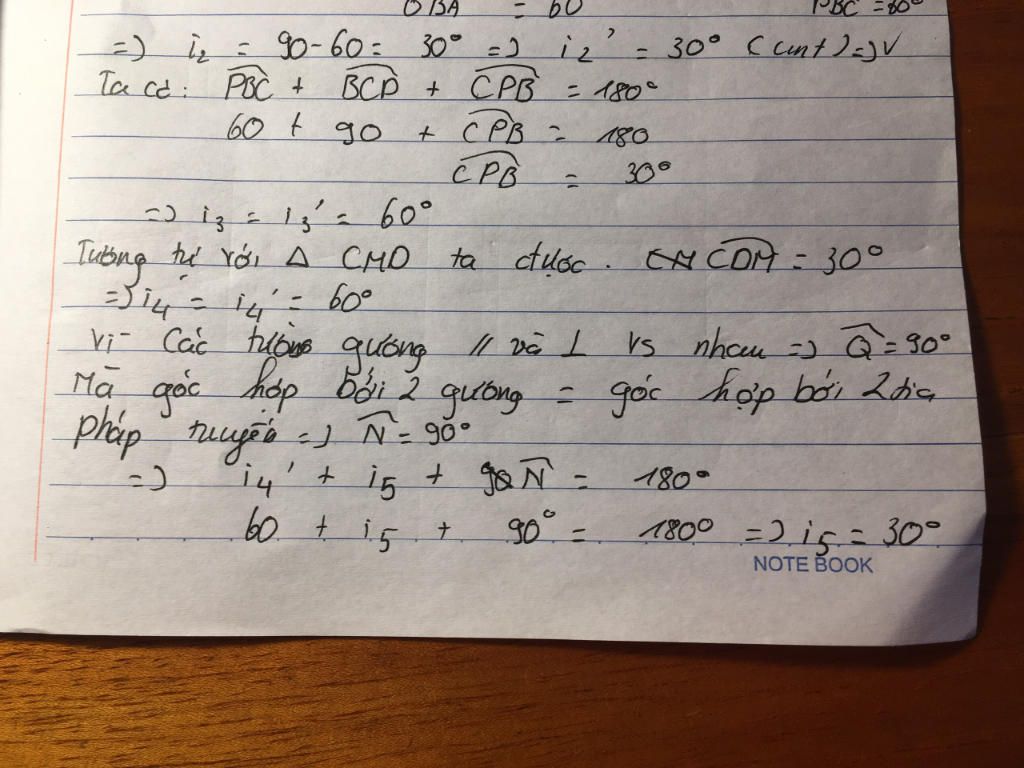 OBA = 60 PBC = 60°
=> i₂ = 90 - 60 = 30° => i₂' = 30° (cmt) => √
Ta có: PBC + BCP + CPB = 180°
60 + 90 + CPB = 180
CPB = 30°
=> i₃ = i₃' = 60°
Tương tự với Δ CMD ta được. CDM = 30°
=> i₄ = i₄' = 60°
Vì Các gương // và ⊥ vs nhau => Q = 90°
Mà góc hợp bởi 2 gương = góc hợp bởi 2
pháp tuyến => N = 90°
=> i₄' + i₅ + N = 180°
60 + i₅ + 90° = 180° => i₅ = 30°
NOTE BOOK